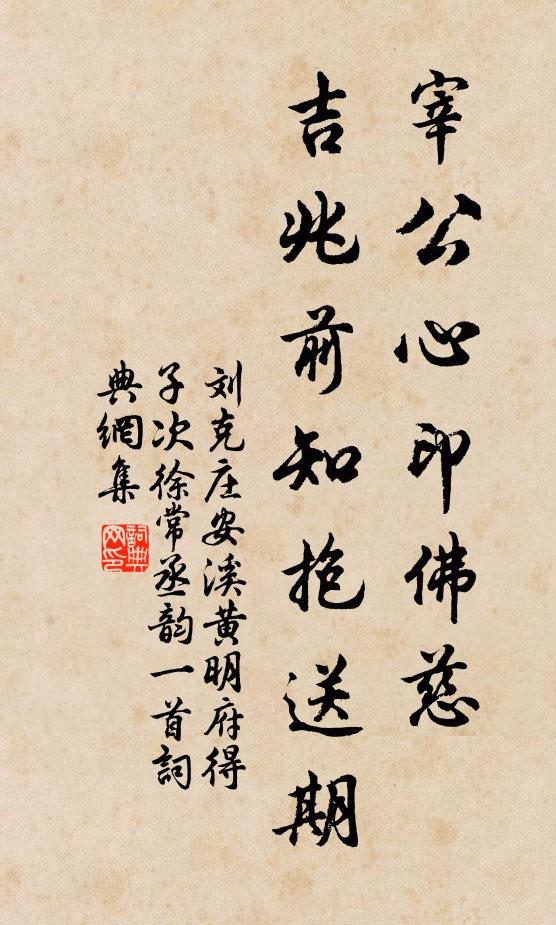 宰公心印佛慈
吉兆前知抱送期
刘克庄安溪黄明府得
子次徐常丞韵一首詞
典網集
詞典
网印